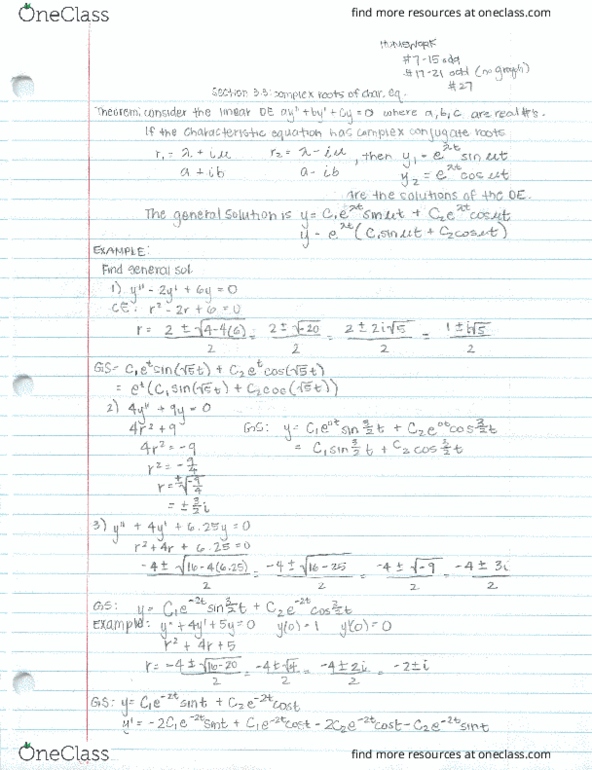 OneClass
find more resources at oneclass.com
HOMEWORK
#7-15 odd
#17-21 odd (no graph)
#27
Section 3.3: complex roots of char. eq.
Theorem: consider the linear DE ay" + by' + cy = 0 where a, b, c are real #'s.
If the characteristic equation has complex conjugate roots
r₁ = λ + iμ r₂ = λ - iμ , then y₁ = e^λt sin μt
a + ib a - ib y₂ = e^λt cos μt
are the solutions of the DE.
The general solution is y = C₁e^λt sin μt + C₂e^λt cos μt
y = e^λt (C₁ sin μt + C₂ cos μt)
EXAMPLE:
Find general sol.
1) y" - 2y' + 6y = 0
CE: r² - 2r + 6 = 0
r = 2 ± √4-4(6) / 2 = 2 ± √-20 / 2 = 2 ± 2i√5 / 2 = 1 ± i√5 / 2
GS = C₁e^t sin(√5 t) + C₂e^t cos(√5 t)
= e^t (C₁ sin(√5 t) + C₂ cos(√5 t))
2) 4y" + 9y = 0
4r² + 9 GS: y = C₁e^0t sin 3/2 t + C₂e^0t cos 3/2 t
4r² = -9 = C₁ sin 3/2 t + C₂ cos 3/2 t
r² = -9/4
r = ±√-9/4
= ± 3/2 i
3) y" + 4y' + 6.25y = 0
r² + 4r + 6.25 = 0
-4 ± √16-4(6.25) / 2 = -4 ± √16-25 / 2 = -4 ± √-9 / 2 = -4 ± 3i / 2
GS: y = C₁e^-2t sin 3/2 t + C₂e^-2t cos 3/2 t
Example: y" + 4y' + 5y = 0 y(0) = 1 y'(0) = 0
r² + 4r + 5
r = -4 ± √16-20 / 2 = -4 ± √-4 / 2 = -4 ± 2i / 2 = -2 ± i
GS: y = C₁e^-2t sin t + C₂e^-2t cos t
y' = -2C₁e^-2t sin t + C₁e^-2t cos t - 2C₂e^-2t cos t - C₂e^-2t sin t
OneClass
find more resources at oneclass.com